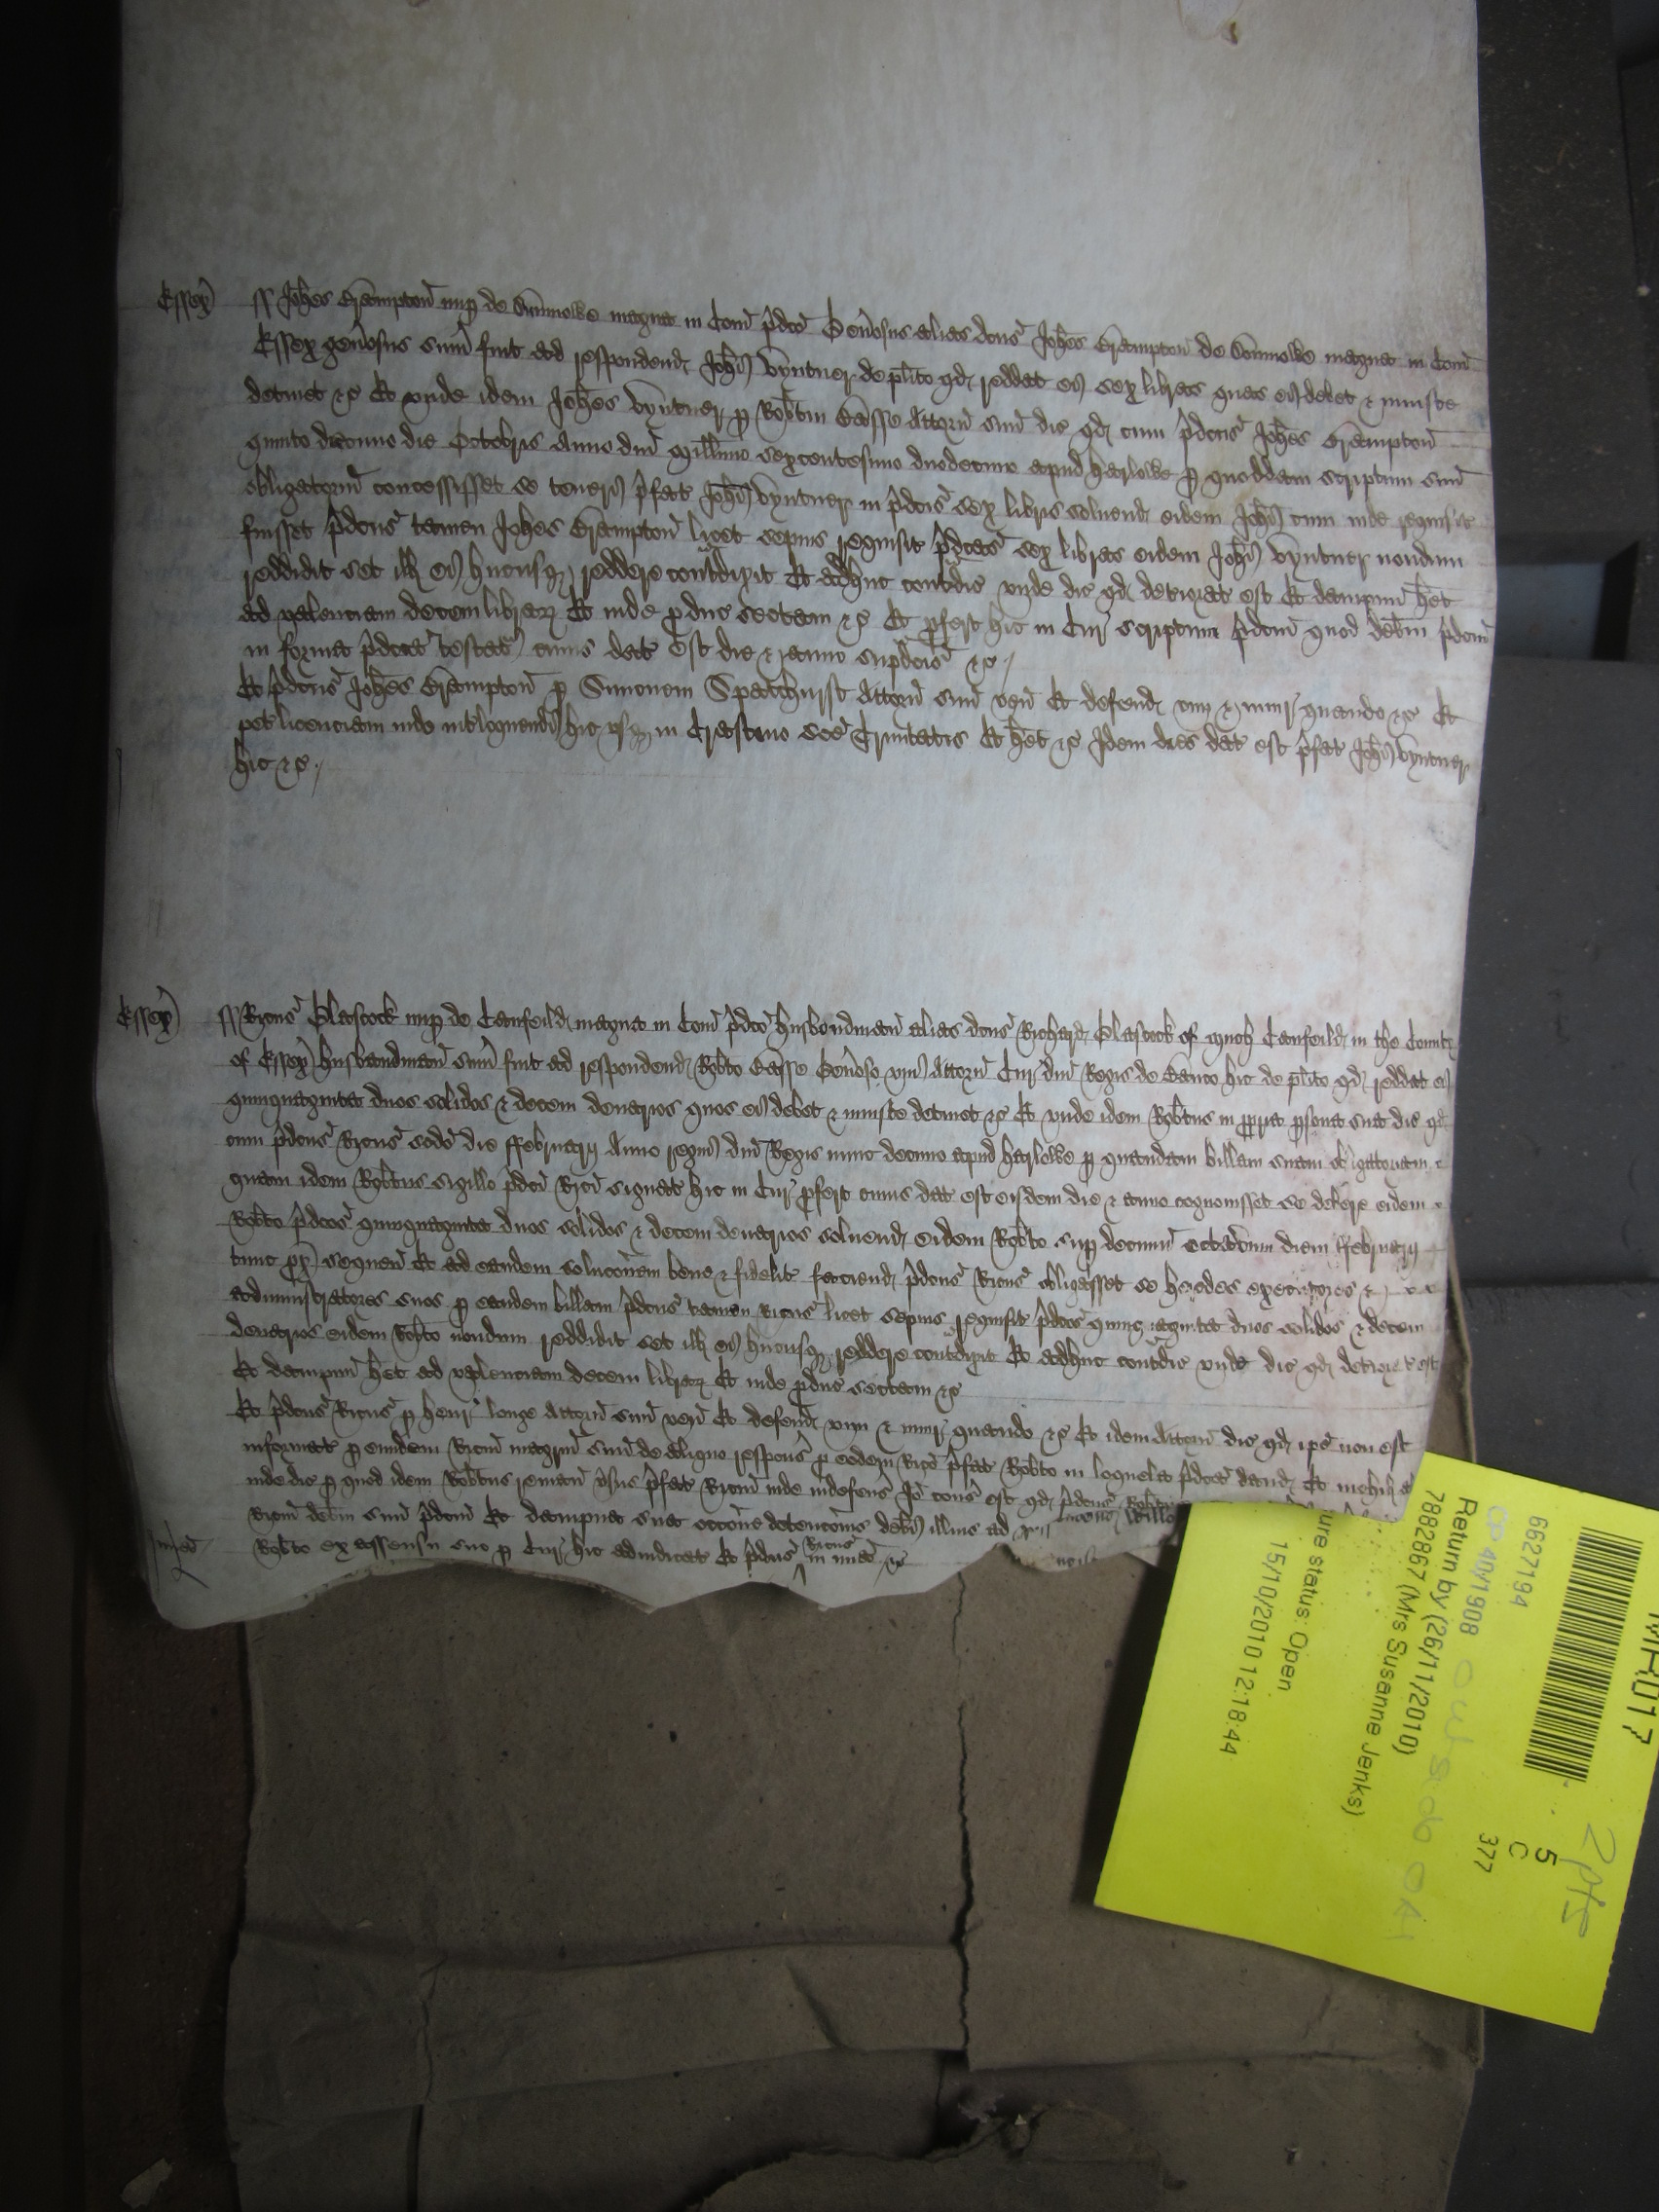 Essex ss Joħes Crampton nup de Dunmowe magna in Com p̄dco Geñosus alias dcus Joħes Crampton de Dunmowe magna in Com
Essex geñosus sum fuit ad respondend Joħi Vyntner de plito qd reddat ei sex libras quas ei debet & iniuste
detinet &c Et unde idem Joħes Vyntner p Robtm Basse Attorn suu dic qd cum p̄dcus Joħes Crampton
quinto decimo die Octobris Anno dni Millimo sexcentesimo duodecimo apud Harlowe p quoddam scriptum suu
obligatoriu concessisset se teneri p̄fat Joħi Vyntner in p̄dcis sex libris solvend eidem Joħi cum inde requisit
fuisset p̄dcus tamen Joħes Crampton licet sepius requisit p̄dcas sex libras eidem Joħi Vyntner nondum
reddidit set ill ei hucusq reddere contdixit Et adhuc contdic unde dic qd deteriorat est Et dampnu het
ad valenciam decem librar Et inde pduc sectam &c Et pfert hic in Cur scriptum p̄dcm quod debm p̄dcm
in forma p̄dca testat cuius dat est die & anno supdcis &c
Et p̄dcus Joħes Crampton p Simonem Spatchurst Attorn suu ven Et defend vim & iniur quando &c Et
pet licenciam inde intloquendi hic usq in Crastino sce Trinitatis Et het &c Idem dies dat est p̄fat Joħi Vyntner
hic &c
Essex ss Ricus Glascock nup de Canfeild magna in Com p̄dco husbondman alias dcus Richard Glascock of much Canfeild in the County
of Essex husbandman sum fuit ad respondend Robto Basse Geñoso uni Attorn Cur dni Regis de Banco hic de plito qd reddat ei
quinquaginta duos solidos & decem denarios quos ei debet & iniuste detinet &c Et unde idem Robtus in ppria psona sua dic qd
cum p̄dcus Ricus scdo die ffebruarij Anno regni dni Regis nunc decimo apud Harlowe p quandam billam suam obligatoriam
quam idem Robtus sigillo p̄dci Rici signat hic in Cur pfert cuius dat est eisdem die & anno cognovisset se debere eidem
Robto p̄dcos quinquaginta duos solidos & decem denarios solvend eidem Robto sup decimu octavum diem ffebruarij
tunc px sequen Et ad eandem solucoem bene & fidelit faciend p̄dcus Ricus obligasset se heredes executores &
administratores suos p eandem billam p̄dcus tamen Ricus licet sepius requisit p̄dcos quinquaginta duos solidos & decem
denarios eidem Robto nondum reddidit set ill ei hucusq reddere contdixit Et adhuc contdic unde dic qd deteriorat est
Et dampnu het ad valenciam decem librar Et inde pduc sectam &c
Et p̄dcus Ricus p Henr longe Attorn suu ven Et defend vim & iniur quando &c Et idem Attorn dic qd ipe non est
informat p eundem Ricm magrm suu de aliquo respons p eodem Rico p̄fat Robto in loquela p̄dca dand Et nichil
inde dic p quod idem Robtus reman vsus p̄fat Ricm inde indefens Io cons est qd p̄dcus Robtus
Ricm debm suu p̄dcm Et dampna sua occone detencois debi illius ad
Robto ex assensu suo p Cur hic adiudicat Et p̄dcus Ricus in mia &c
MR017
2 pts
6627194
5
C
377
CP 40/1908
Return by (26/11/2010)
7882867 (Mrs Susanne Jenks)
ure status: Open
15/10/2010 12:18:44